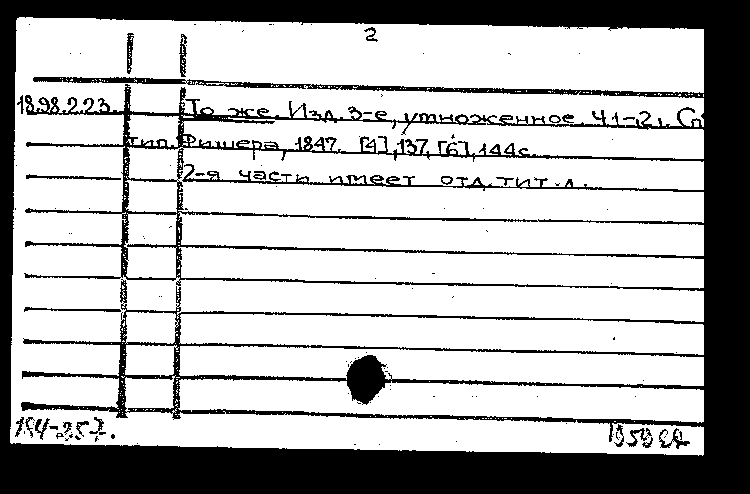 2
18.98.2.23. То же. Изд. 3-е, умноженное. Ч.1-[2]. Сп
тип. Фишера, 1847. [4], 137, [6], 144с.
2-я части имеет отд. тит. л.
184-257.